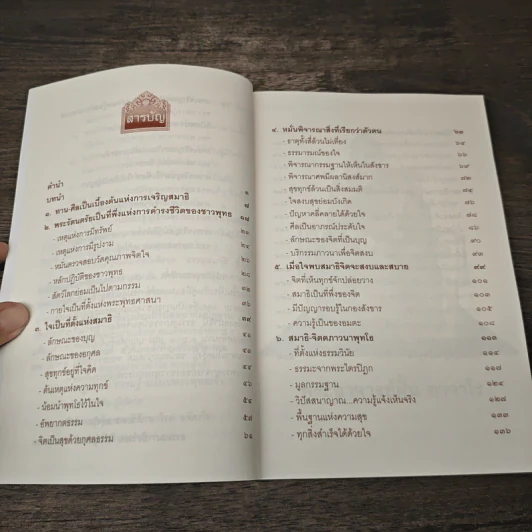 สารบัญ
คำนำ
บทนำ ๑
๑. ทาน-ศีลเป็นเบื้องต้นแห่งการเจริญสมาธิ ๗
๒. พระรัตนตรัยเป็นที่พึ่งแห่งการดำรงชีวิตของชาวพุทธ ๑๗
- เหตุแห่งการมีทรัพย์
- เหตุแห่งการมีรูปงาม
- หมั่นตรวจสอบวัดคุณภาพจิตใจ
- หลักปฏิบัติของชาวพุทธ
- สัตว์โลกย่อมเป็นไปตามกรรม
- กายใจเป็นที่ตั้งแห่งพระพุทธศาสนา
๓. ใจเป็นที่ตั้งแห่งสมาธิ ๓๙
- ลักษณะของบุญ
- ลักษณะของอกุศล
- สุขทุกข์อยู่ที่ใจคิด
- ต้นเหตุแห่งความทุกข์
- น้อมนำพุทโธไว้ในใจ
- อัพยากตธรรม
- จิตเป็นสุขด้วยกุศลธรรม ๖๑
๔. หมั่นพิจารณาสิ่งที่เรียกว่าตัวตน ๖๓
- ธาตุทั้งสี่ล้วนไม่เที่ยง ๖๕
- ธรรมารมณ์ของใจ ๖๖
- พิจารณากรรมฐานให้เห็นในสังขาร ๖๙
- พิจารณาศพมีผลานิสงส์มาก ๗๒
- สุขทุกข์ล้วนเป็นสิ่งสมมติ ๗๕
- ใจสงบสุขย่อมบังเกิด
- ปัญหาคลี่คลายได้ด้วยใจ ๗๘
- ศีลเป็นอาภรณ์ประดับใจ ๘๖
- ลักษณะของจิตที่เป็นบุญ ๙๐
- บริกรรมภาวนาเพื่อจิตสงบ ๙๓
๕. เมื่อใจพบสมาธิจิตจะสงบและสบาย ๙๙
- จิตที่เห็นทุกข์จักปล่อยวาง ๑๐๑
- สมาธิเป็นที่พึ่งของจิต ๑๐๓
- มีปัญญารอบรู้ในกองสังขาร ๑๐๕
- ความรู้เป็นของอมตะ ๑๐๘
๖. สมาธิ-จิตตภาวนาพุทโธ ๑๑๓
- ที่ตั้งแห่งธรรมวินัย ๑๑๔
- ธรรมะจากพระไตรปิฎก ๑๑๗
- มูลกรรมฐาน ๑๒๔
- วิปัสสนาญาณ...ความรู้แจ้งเห็นจริง ๑๒๗
- พื้นฐานแห่งความสุข ๑๓๒
- ทุกสิ่งสำเร็จได้ด้วยใจ ๑๓๖